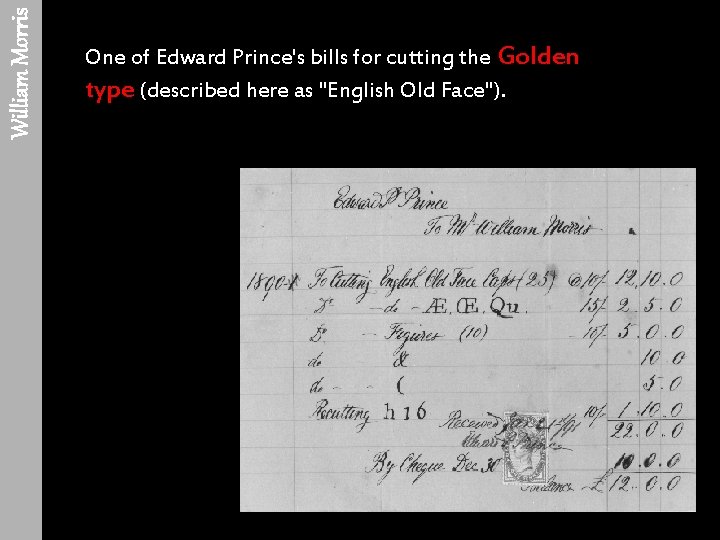 William Morris
One of Edward Prince's bills for cutting the Golden
type (described here as "English Old Face").
Edward P Prince
To Mr William Morris
1890-1 To Cutting English Old Face Caps (25) @ 10/- 12.10.0
Do - do - Æ, Œ, Qu. 15/- 2.5.0
Do - Figures (10) - 10/- 5.0.0
do - & 10.0
do - - ( 5.0
Recutting h 1 6 10/- 1.10.0
Received 22.0.0
Edward Prince
By Cheque Dec 30 10.0.0
£12.0.0